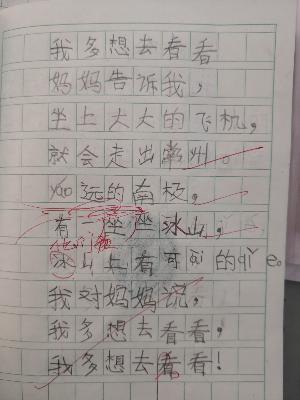 我多想去看看
妈妈告诉我，
坐上大大的飞机，
就会走出常州。
yáo远的南极，
有一座座冰山，
冰山上有可ài的qǐ e。
我对妈妈说，
我多想去看看，
我多想去看看！